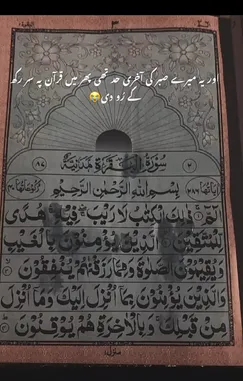 ٣
اور یہ میرے صبر کی آخری حد تھی پھر میں قرآن پہ سر رکھ
کے رُو دی😭
٨٧
سُوْرَةُ الْبَقَرَةِ مَدَنِيَّةٌ
٢
بِسْمِ اللّٰهِ الرَّحْمٰنِ الرَّحِيْمِ
الٓمّٓ ۚ ذٰلِكَ الْكِتٰبُ لَا رَيْبَ ۛ فِيْهِ ۛ هُدًى
لِّلْمُتَّقِيْنَ ۙ الَّذِيْنَ يُؤْمِنُوْنَ بِالْغَيْبِ
وَيُقِيْمُوْنَ الصَّلٰوةَ وَمِمَّا رَزَقْنٰهُمْ يُنْفِقُوْنَ
وَالَّذِيْنَ يُؤْمِنُوْنَ بِمَآ اُنْزِلَ اِلَيْكَ وَمَآ اُنْزِلَ
مِنْ قَبْلِكَ ۚ وَبِالْاٰخِرَةِ هُمْ يُوْقِنُوْنَ
منزل